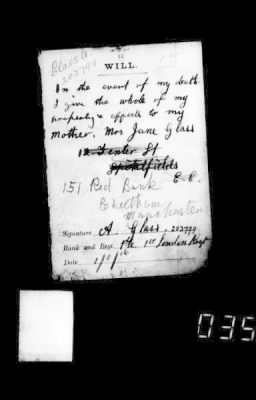 Glass A
203799
12
WILL.
In the event of my death
I give the whole of my
property & effects to my
Mother, Mrs Jane Glass
12 Tenter St
Spitalfields
E.C.
151 Red Bank
Cheetham
Manchester
Signature A. Glass. 203799
Rank and Regt. Pte 1st London Regt
Date
035